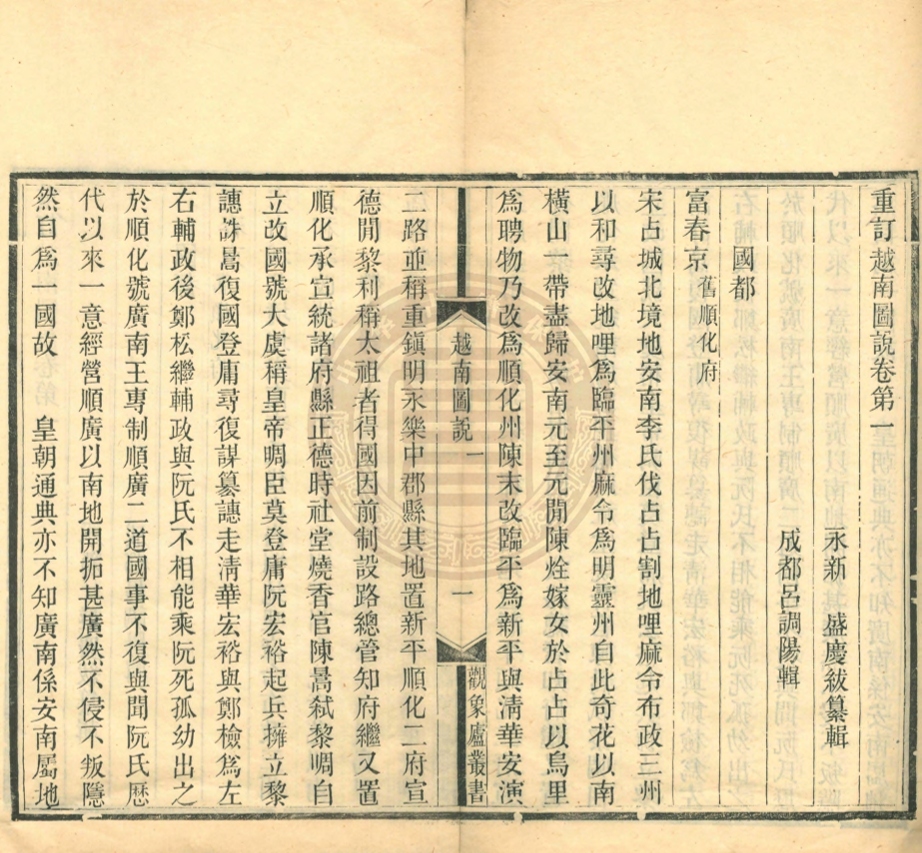 重訂越南圖說卷第一
永新 盛慶紱纂輯
成都呂調陽輯
國都
富春京舊順化府
宋占城北境地安南李氏伐占占割地哩麻令布政三州
以和尋改地哩爲臨平州麻令爲明靈州自此奇花以南
橫山一帶盡歸安南元至元閒陳烇嫁女於占占以烏里
爲聘物乃改爲順化州陳末改臨平爲新平與淸華安演
越南圖說一
一
觀象廬叢書
二路並稱重鎭明永樂中郡縣其地置新平順化二府宣
德閒黎利稱太祖者得國因前制設路總管知府繼又置
順化承宣統諸府縣正德時社堂燒香官陳暠弑黎晭自
立改國號大虞稱皇帝晭臣莫登庸阮宏裕起兵擁立黎
譓誅暠復國登庸尋復謀纂譓走淸華宏裕與鄭檢爲左
右輔政後鄭松繼輔政與阮氏不相能乘阮死孤幼出之
於順化號廣南王專制順廣二道國事不復與聞阮氏歷
代以來一意經營順廣以南地開拓甚廣然不侵不叛隱
然自爲一國故 皇朝通典亦不知廣南係安南屬地